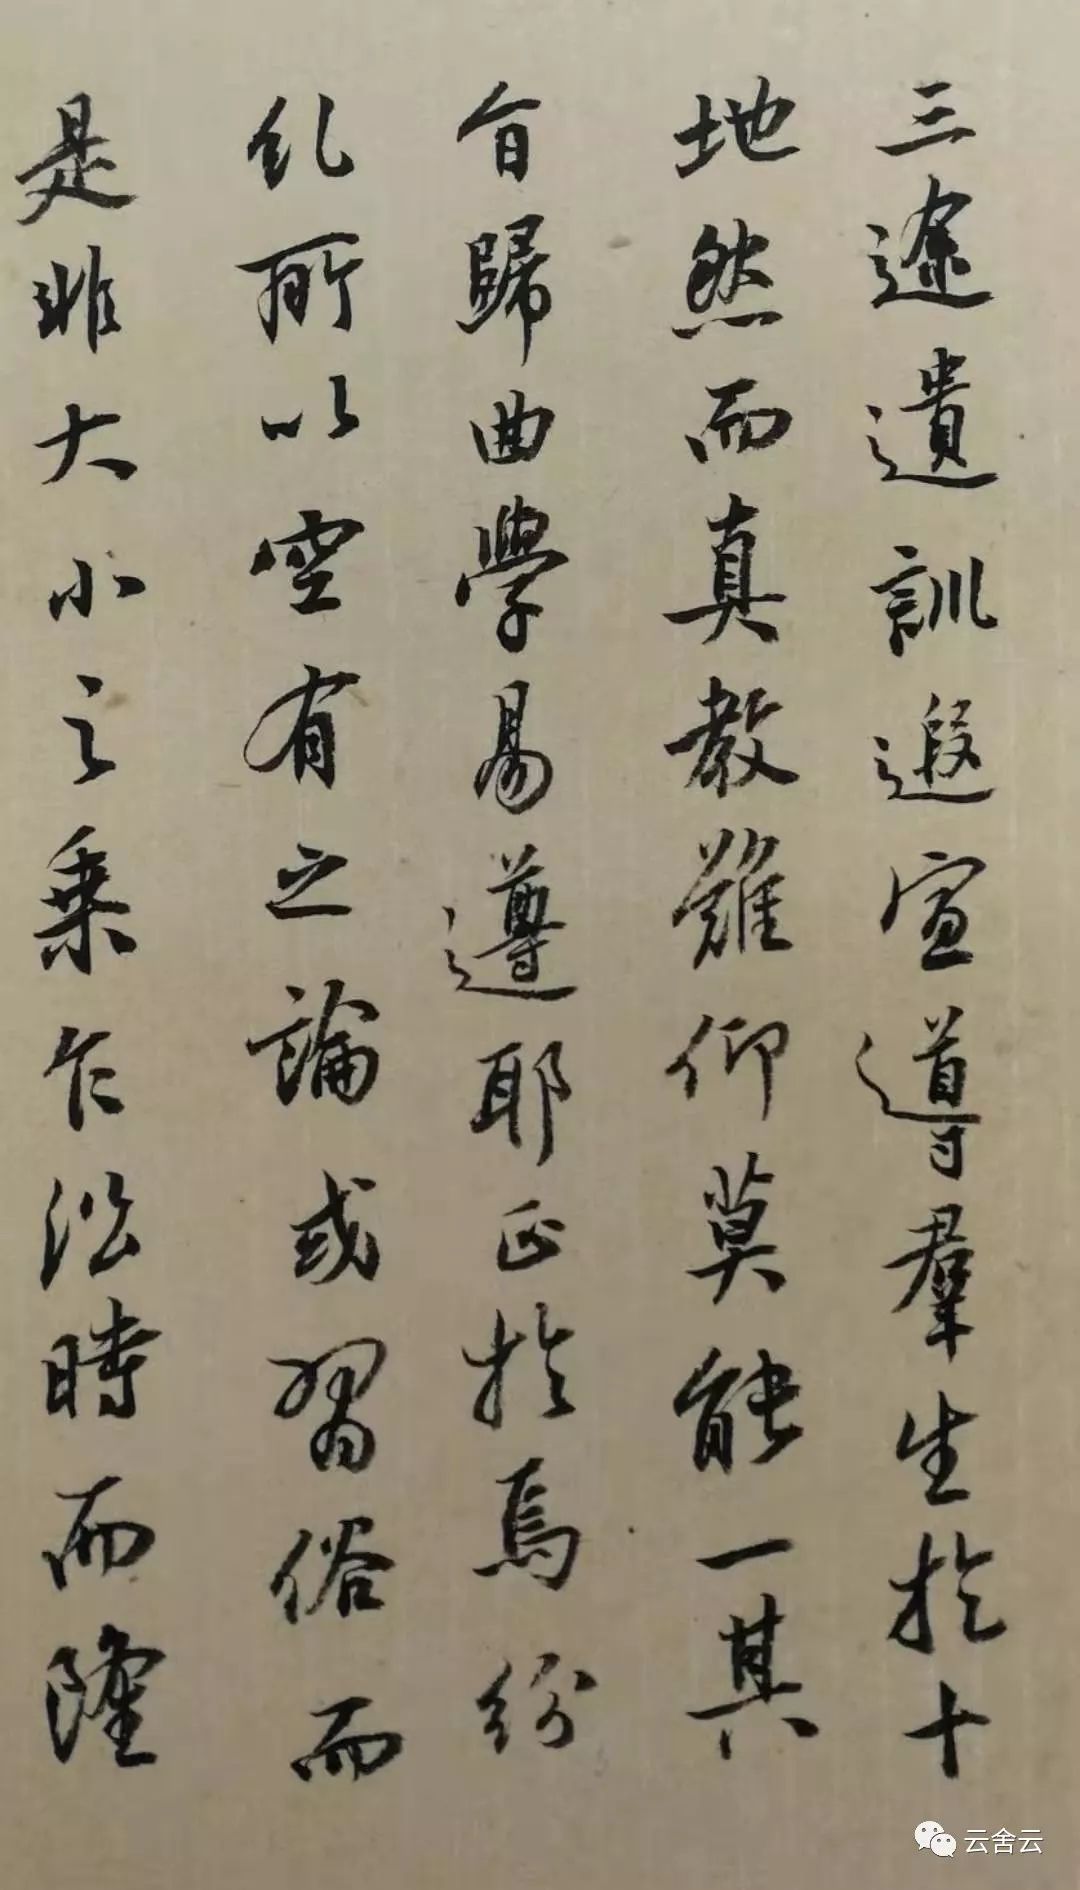 三途遺訓遐宣導羣生於十
地然而真教難仰莫能一其
旨歸曲學易遵耶正於焉紛
糺所以空有之論或習俗而
是非大小之乗乍沿時而隆
云舍云